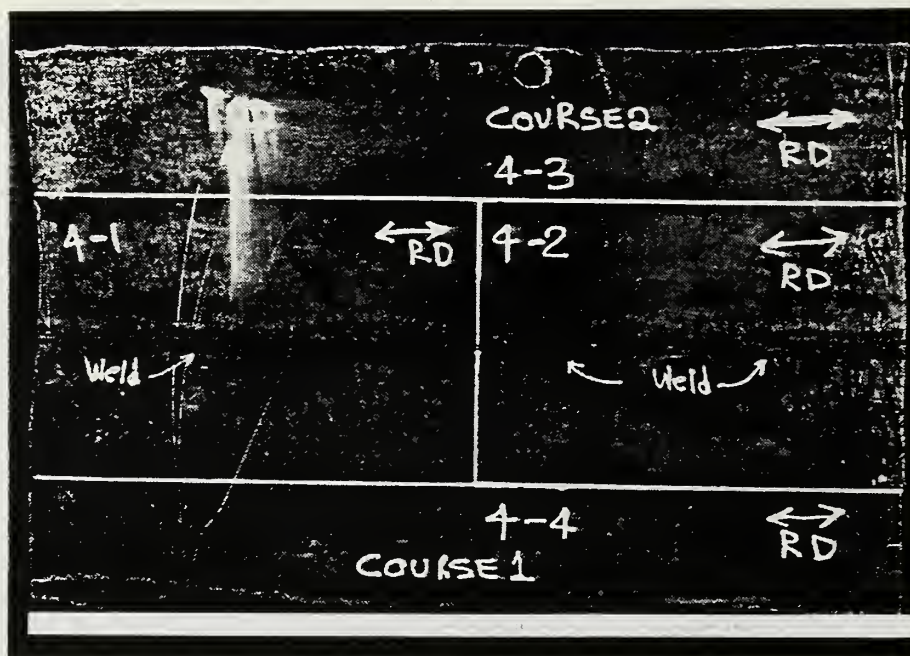 COURSE2
RD
4-3
4-1
RD
4-2
RD
Weld
Weld
4-4
RD
COURSE1